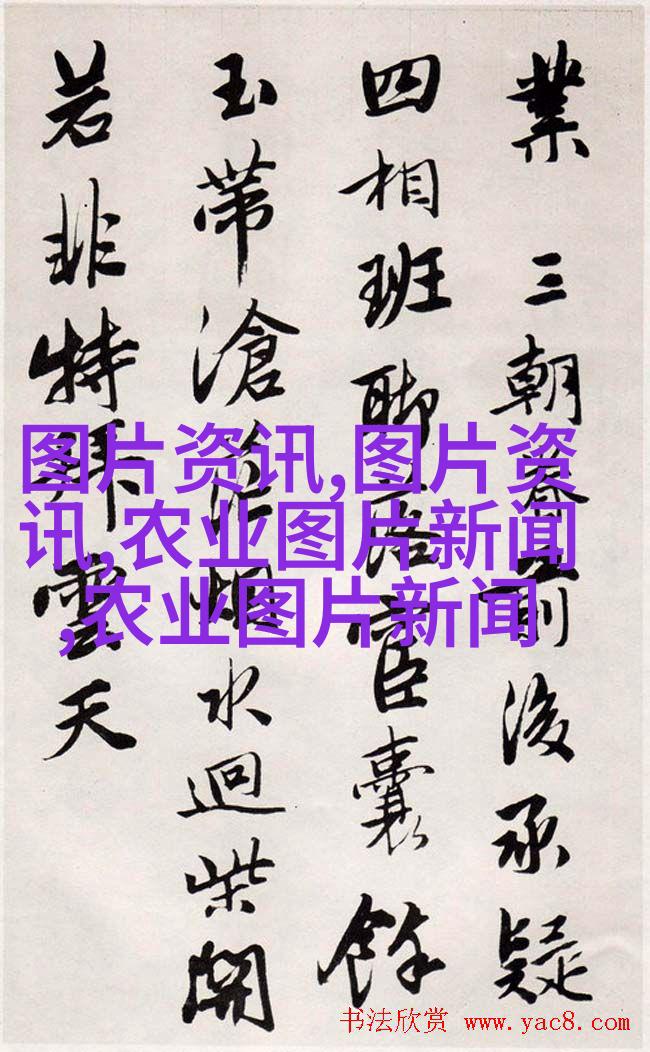 業 三朝前後承疑
四相班聯臣囊餘
玉帶滄烟水迴柴開
若非特拜雲天
图片资讯,图片资
讯,农业图片新闻
,农业图片新闻
书法欣赏 www.yac8.com